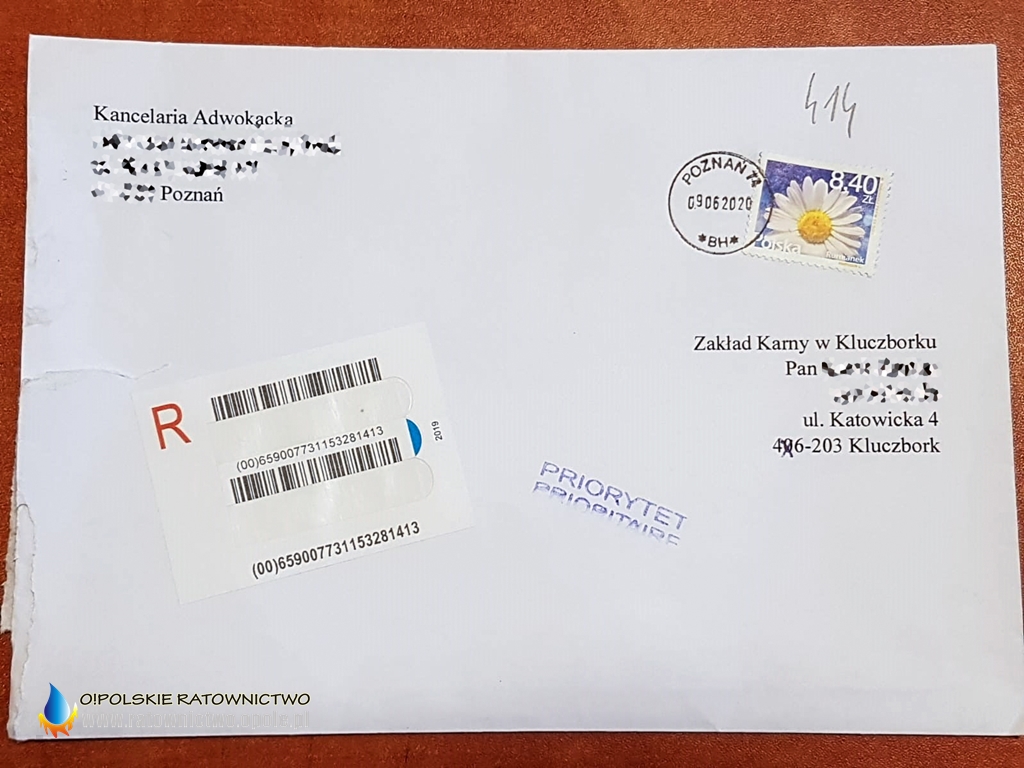 Kancelaria Adwokacka
Poznań
414
POZNAŃ 74
09062020
*BH*
8.40
ZŁ
Polska
Rumianek
Zakład Karny w Kluczborku
Pan
ul. Katowicka 4
46-203 Kluczbork
R
2019
(00)659007731153281413
(00)659007731153281413
PRIORYTET
PRIORITAIRE
O!POLSKIE RATOWNICTWO